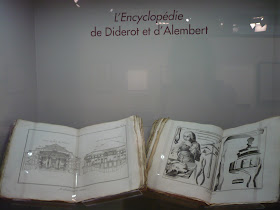 L'Encyclopédie
de Diderot et d'Alembert